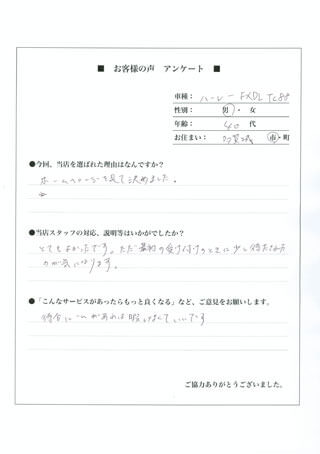 ■ お客様の声 アンケート ■
車種： ハーレー FXDL TC88
性別： 男・女
年齢： 40 代
お住まい： 市・町
●今回、当店を選ばれた理由はなんですか？
ホームページを見て決めました。
●当店スタッフの対応、説明等はいかがでしたか？
とてもよかったです。ただ最初の受け付けのときに少し待たされた
のが気になります。
●「こんなサービスがあったらもっと良くなる」など、ご意見をお願いします。
待合に があれば暇 なくていいです
ご協力ありがとうございました。